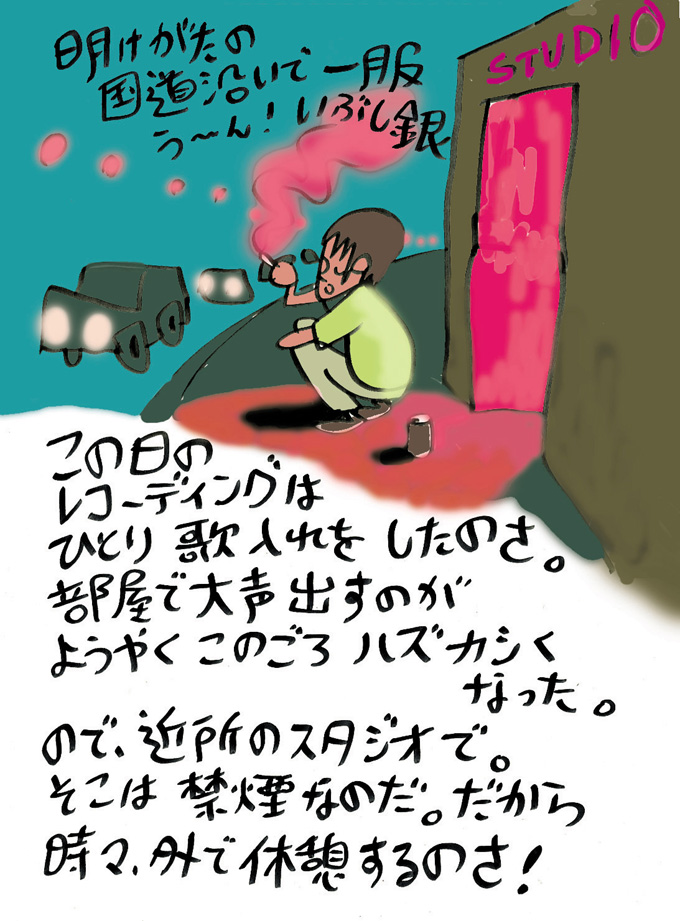 STUDIO
明けがたの
国道沿いで一服
う〜ん！いぶし銀
この日の
レコーディングは
ひとり歌入れをしたのさ。
部屋で大声出すのが
ようやくこのごろハズカシく
なった。
ので、近所のスタジオで。
そこは禁煙なのだ。だから
時々、外で休憩するのさ！